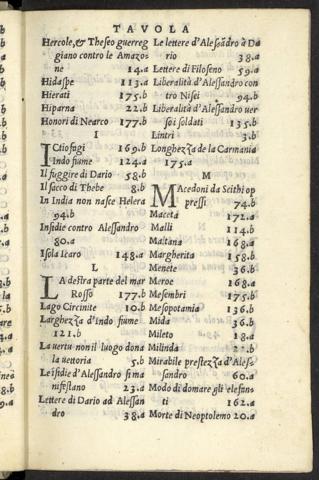 TAVOLA
Hercole, & Theseo guerreg
giano contro le Amazo-
ne 14.a
Hidaspe 113.a
Hierati 175.b
Hiparna 22.b
Honori di Nearco 177.b
I
Ictiofagi 169.b
Indo fiume 124.a
Il fuggire di Dario 58.b
Il sacco di Thebe 8.b
In India non nasce Helera
94.b
Insidie contro Alessandro
80.a
Isola Icaro 148.a
L
La destra parte del mar
Rosso 177.b
Lago Circinite 10.b
Larghezza d'Indo fiume
121.b
La vertu non il luogo dona
la vettoria 5.b
Le isidie d'Alessandro si ma
nifestano 23.a
Lettere di Dario ad Alessan
dro 38.a
Le lettere d'Alessādro à Da
rio 38.a
Lettere di Filoseno 59.a
Liberalità d'Alessandro con
tro Nisei 94.b
Liberalità d'Alessandro uer
so i soldati 135.b
Lintri 3.b
Longhezza de la Carmania
175.a
M
Macedoni da Scithi op
pressi 74.b
Maceta 172.a
Malli 114.b
Maltana 168.a
Margherita 158.b
Menete 36.b
Meroe 168.a
Mesembri 175.b
Mesopotamia 136.b
Mida 36.b
Mileto 18.a
Milinda 22.b
Mirabile prestezza d'Ales-
sandro 60.a
Modo di domare gli elefan-
ti 162.a
Morte di Neoptolemo 20.a